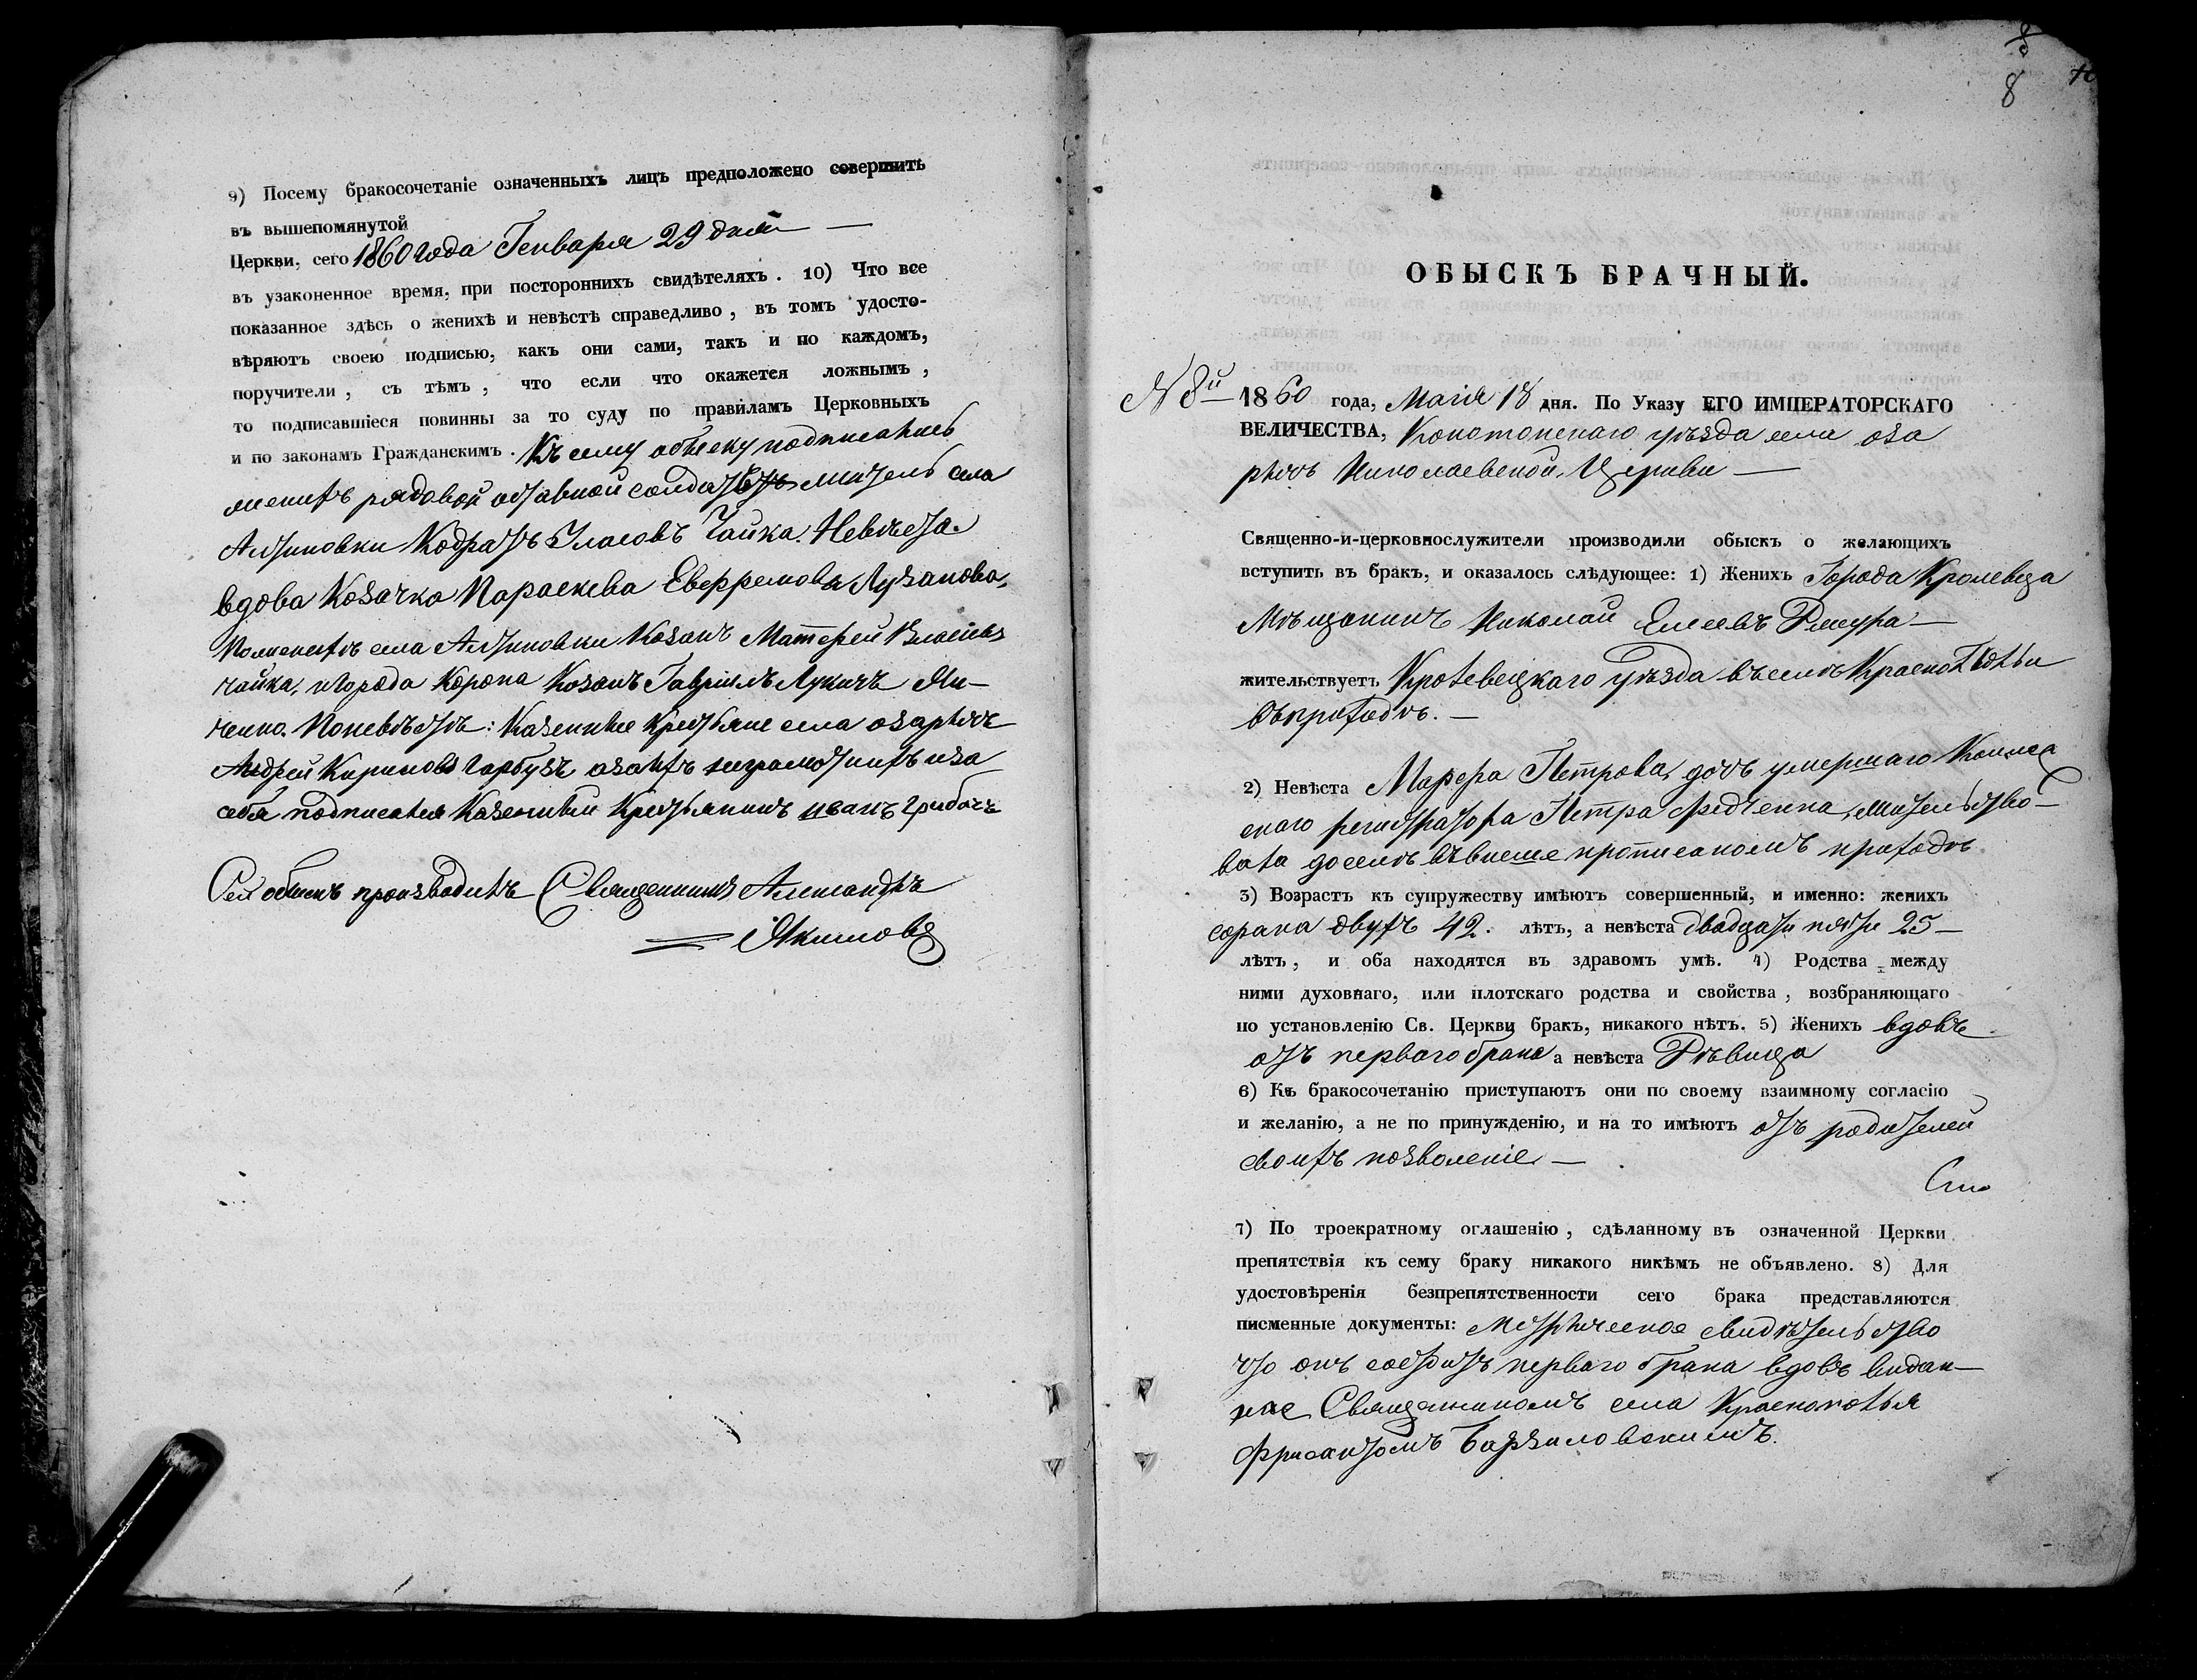 9) Посему бракосочетаніе означенныхъ лицъ предположено совершить
въ вышепомянутой
Церкви, сего 1860 года Генваря 29 дня —
въ узаконенное время, при постороннихъ свидѣтеляхъ. 10) Что все
показанное здѣсь о женихѣ и невѣстѣ справедливо, въ томъ удосто-
вѣряютъ своею подписью, какъ они сами, такъ и по каждомъ,
поручители, съ тѣмъ, что если что окажется ложнымъ,
то подписавшіеся повинны за то суду по правиламъ Церковныхъ
и по законамъ Гражданскимъ. Къ сему обыску подписались
женихъ рядовой отставной солдатъ житель села
Алтиновки Кодратъ Власовъ Чайка. Невѣста.
вдова Козачка Параскева Еверремова
Поженихѣ села Алтиновки Козакъ Матфей Власіевъ
чайка, игорода Коропа Козакъ Гавріилъ Лукичъ Ми-
ченко. Поневѣстѣ: Казенные Крестьяне села озаричъ
Андрей Кириловъ Гарбузъ азанихъ неграмотнихъ иза
себя подписался Казенный Крестьянинъ иванъ Грибачъ
Сей обыскъ производилъ Священникъ Александръ
Якимовъ
8
ОБЫСКЪ БРАЧНЫЙ.
№ 8й 1860 года, Маія 18 дня. По Указу ЕГО ИМПЕРАТОРСКАГО
ВЕЛИЧЕСТВА, Конотопскаго уѣзда села оза
рѣчъ Николаевской Церкви —
Священно-и-церковнослужители производили обыскъ о желающихъ
вступить въ бракъ, и оказалось слѣдующее: 1) Женихъ Города Кролевца
Мѣщанинъ Николай Елисевъ —
жительствуетъ Кролевецкаго уѣзда въселѣ Краснополья
въприходѣ. —
2) Невѣста Марфа Петрова, дочь умершаго Колеж
скаго регистратора Петра Федченка, жительство—
вала доселѣ въвише прописаномъ приходѣ
3) Возрастъ къ супружеству имѣютъ совершенный, и именно: женихъ
сорака двухъ 42. лѣтъ, а невѣста двадцати пяти 25 —
лѣтъ, и оба находятся въ здравомъ умѣ. 4) Родства между
ними духовнаго, или плотскаго родства и свойства, возбраняющаго
по установленію Св. Церкви бракъ, никакого нѣтъ. 5) Женихъ вдовъ
отъ перваго брака а невѣста Дѣвица
6) Къ бракосочетанію приступаютъ они по своему взаимному согласію
и желанію, а не по принужденію, и на то имѣютъ отъ родителей
своихъ позволеніе. —
7) По троекратному оглашенію, сдѣланному въ означенной Церкви
препятствія къ сему браку никакого никѣмъ не объявлено. 8) Для
удостовѣренія безпрепятственности сего брака представляются
писменные документы: метрическое свидѣтельство
что онъ состоитъ перваго брака вдовъ видан—
ное Священникомъ села Краснополья